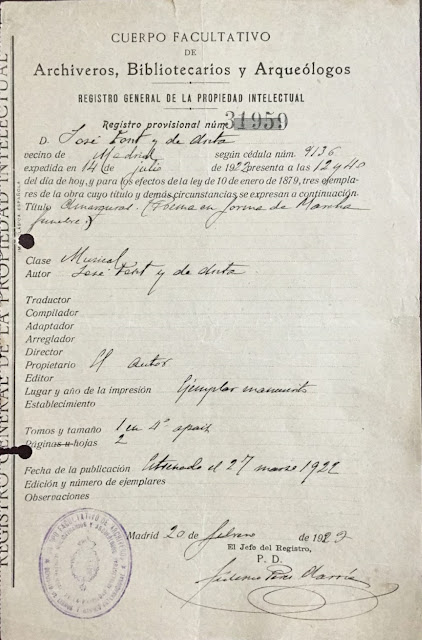 CUERPO FACULTATIVO
DE
Archiveros, Bibliotecarios y Arqueólogos
REGISTRO GENERAL DE LA PROPIEDAD INTELECTUAL
Registro provisional núm. 31959
D. José Font y de Anta
vecino de Madrid según cédula núm. 9136
expedida en 14 de julio de 1922 presenta a las 12 y 40
del día de hoy, y para los efectos de la ley de 10 de enero de 1879, tres ejempla-
res de la obra cuyo título y demás circunstancias se expresan a continuación.
Título Amargura (Poema en forma de Marcha
fúnebre)
Clase Musical
Autor José Font y de Anta
Traductor
Compilador
Adaptador
Arreglador
Director
Propietario El autor
Editor
Lugar y año de la impresión Ejemplar manuscrito
Establecimiento
Tomos y tamaño 1 en 4º
Páginas u hojas 2
Fecha de la publicación Estrenado el 27 marzo 1922
Edición y número de ejemplares
Observaciones
Madrid 20 de febrero de 192
El Jefe del Registro,
P. D.
REGISTRO GENERAL DE LA PROPIEDAD INTELECTUAL